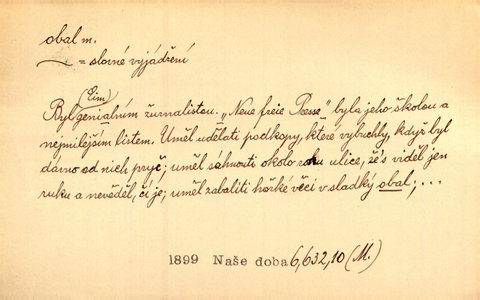 obal m.
= slovné vyjádření
(Eim)
Byl genialním žurnalistou. „Neue freie Presse" byla jeho školou a
nejmilejším listem. Uměl udělati podkopy, které vybuchly, když byl
dávno od nich pryč; uměl sáhnouti okolo rohu ulice, že's viděl jen
ruku a nevěděl, čí je; uměl zabaliti hořké věci v sladký obal; ...
1899 Naše doba 6,632,10 (M.)